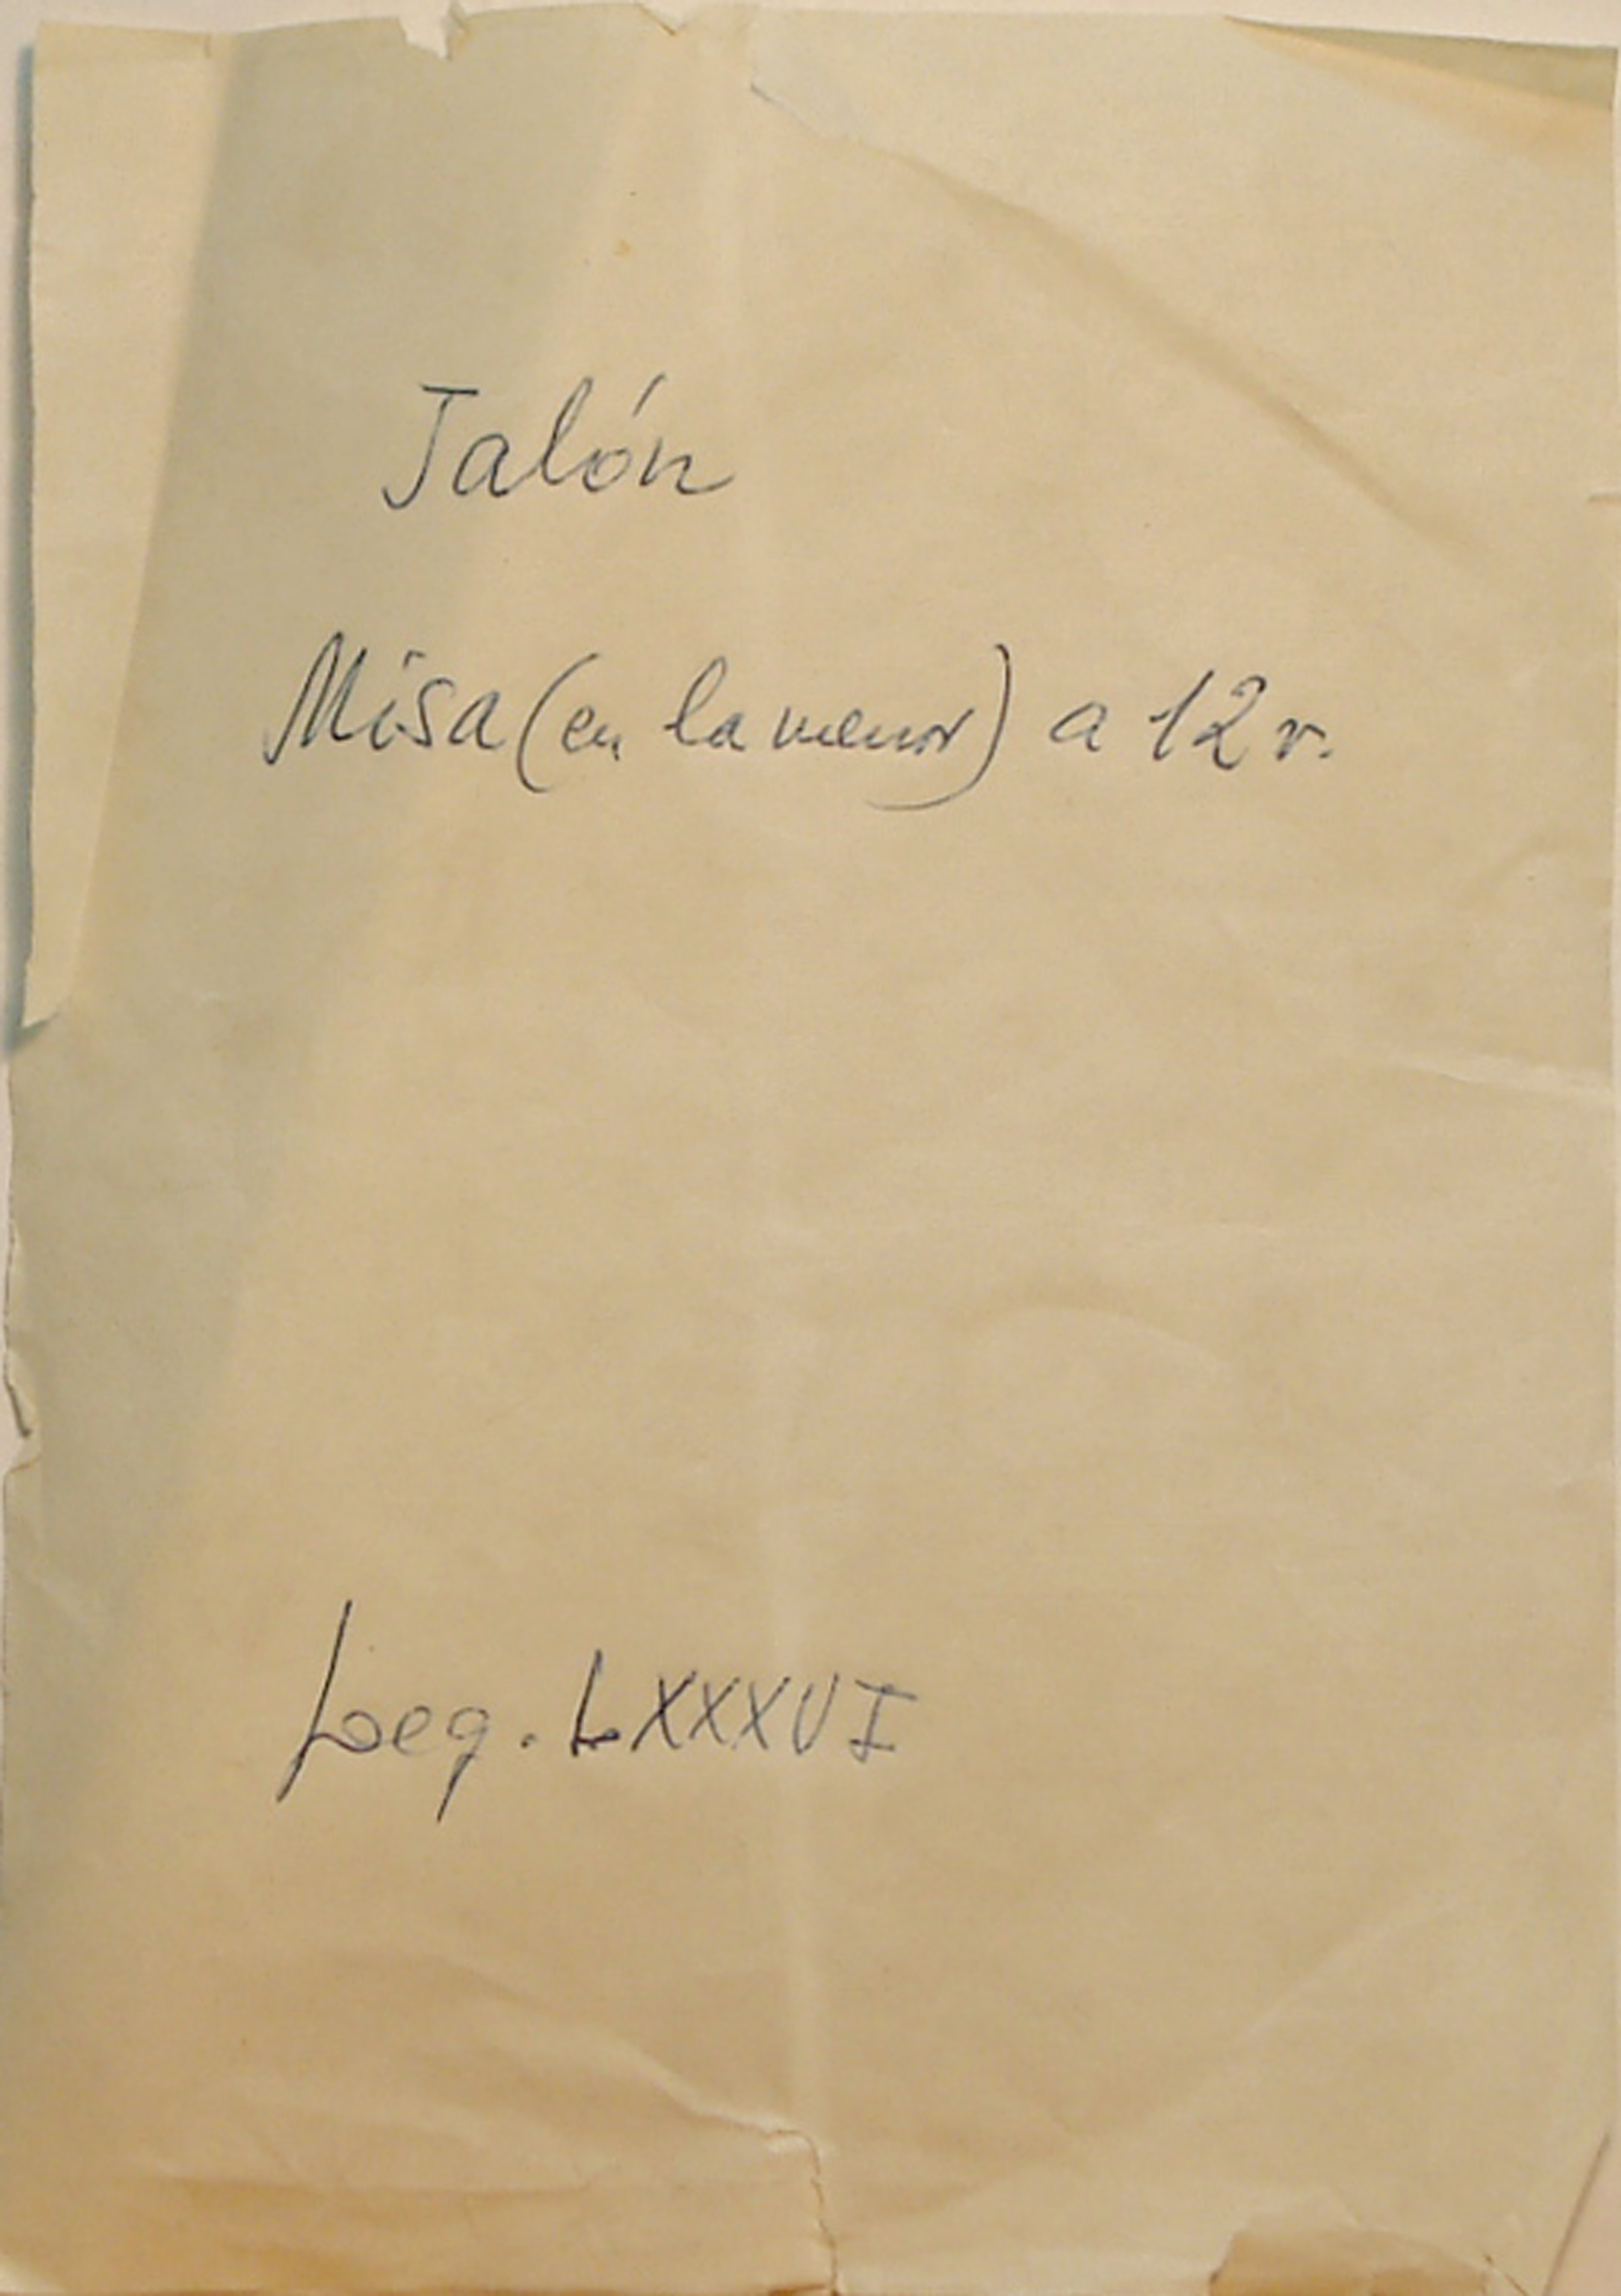 Jalón
Misa (en la menor) a 12 v.
Leg. LXXXVI